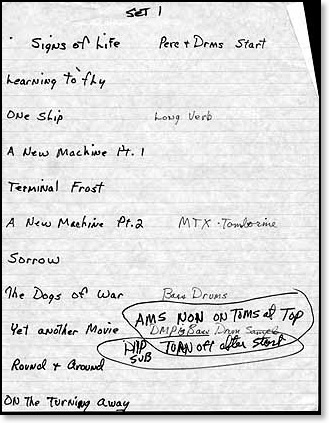 SET 1
Signs of Life Perc + Drms Start
Learning to fly
One Ship Long Verb
A New Machine Pt. 1
Terminal Frost
A New Machine Pt. 2 MTX - Tamborine
Sorrow
The Dogs of War Bass Drums
AMS NON on Toms at Top
Yet another Movie Bass Drum
TURN off after start
SUB
Round + Around
ON the Turning away